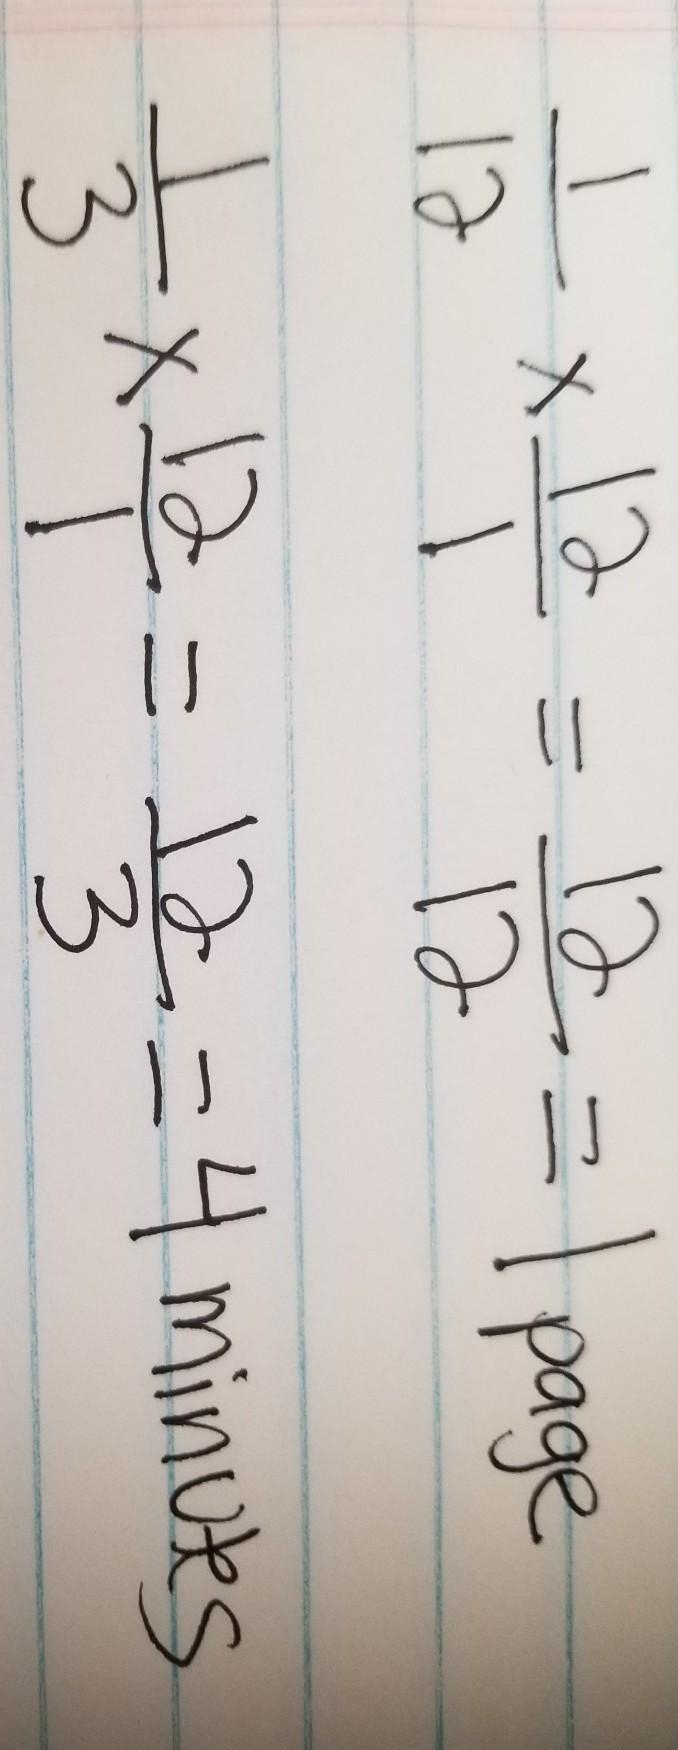 1/12 × 12/1 = 12/12 = 1 page
1/3 × 12/1 = 12/3 = 4 minutes